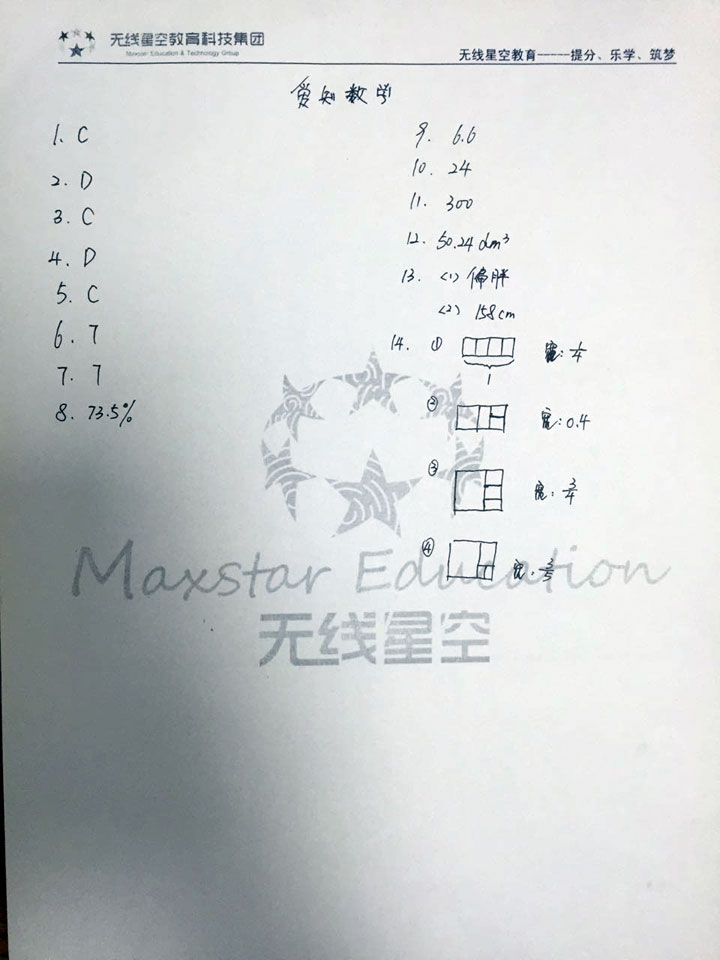 无线星空教育科技集团
Maxstar Education & Technology Group
无线星空教育-----提分、乐学、筑梦
爱知数学
1. C
2. D
3. C
4. D
5. C
6. 7
7. 7
8. 73.5%
9. 6.6
10. 24
11. 300
12. 50.24 dm³
13. (1) 偏胖
(2) 158cm
14. ① 宽: 1/4
1
② 宽: 0.4
③ 宽: 3/4
④ 宽: 3/5
Maxstar Education
无线星空